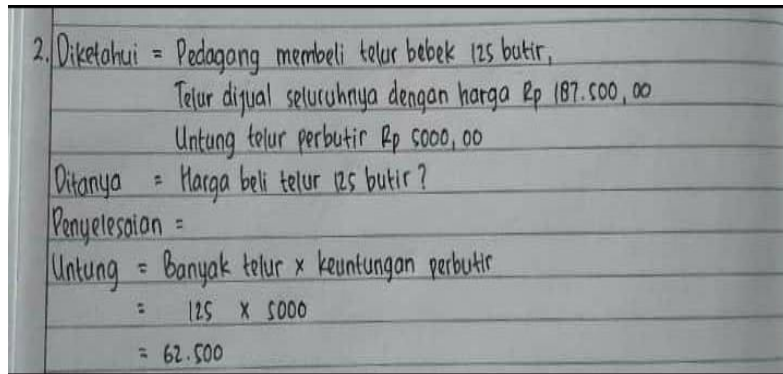 2. Diketahui = Pedagang membeli telur bebek 125 butir,
Telur dijual seluruhnya dengan harga Rp 187.500,00
Untung telur perbutir Rp 5000,00
Ditanya = Harga beli telur 125 butir?
Penyelesaian =
Untung = Banyak telur x keuntungan perbutir
= 125 x 5000
= 62.500